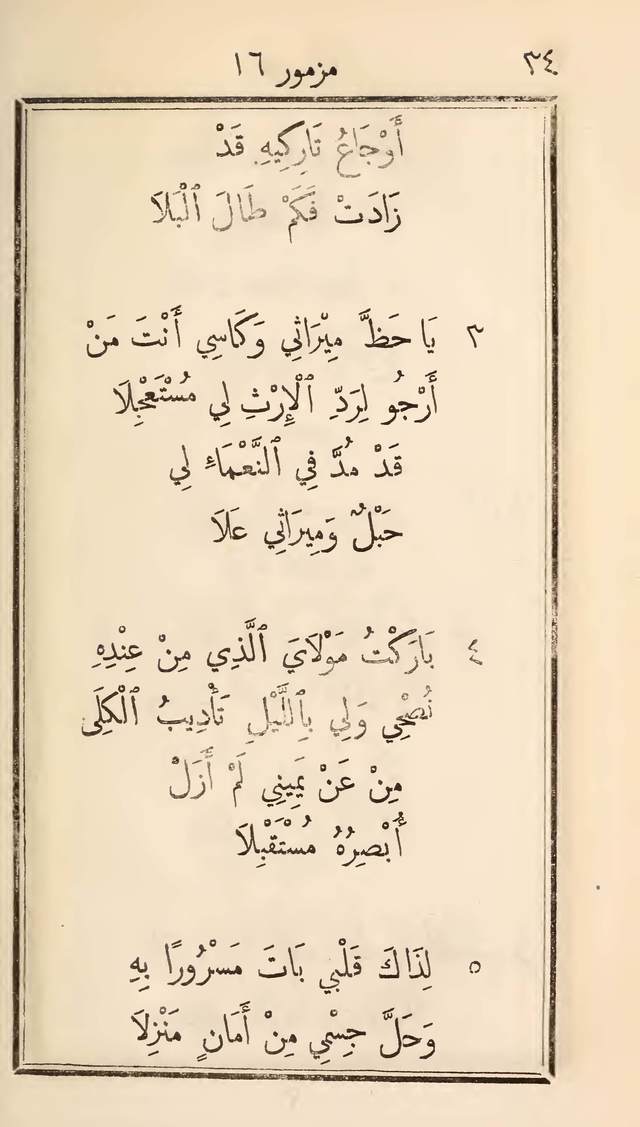 ٣٤ مزمور ١٦
أَوْجَاعُ تَارِكِيهِ قَدْ
زَادَتْ فَكَمْ طَالَ ٱلْبَلَا
٣ يَا حَظَّ مِيْرَاثِي وَكَاسِي أَنْتَ مَنْ
أَرْجُو لِرَدِّ ٱلْإِرْثِ لِي مُسْتَعْجِلَا
قَدْ مُدَّ فِي ٱلنَّعْمَاءِ لِي
حَبْلٌ وَمِيرَاثِي عَلَا
٤ بَارَكْتُ مَوْلَايَ ٱلَّذِي مِنْ عِنْدِهِ
نُصْحِي وَلِي بِٱللَّيْلِ تَأْدِيبُ ٱلْكِلَى
مِنْ عَنْ يَمِينِي لَمْ أَزَلْ
أُبْصِرُهُ مُسْتَقْبِلَا
٥ لِذَاكَ قَلْبِي بَاتَ مَسْرُورًا بِهِ
وَحَلَّ جِسْمِي مِنْ أَمَانٍ مَنْزِلَا